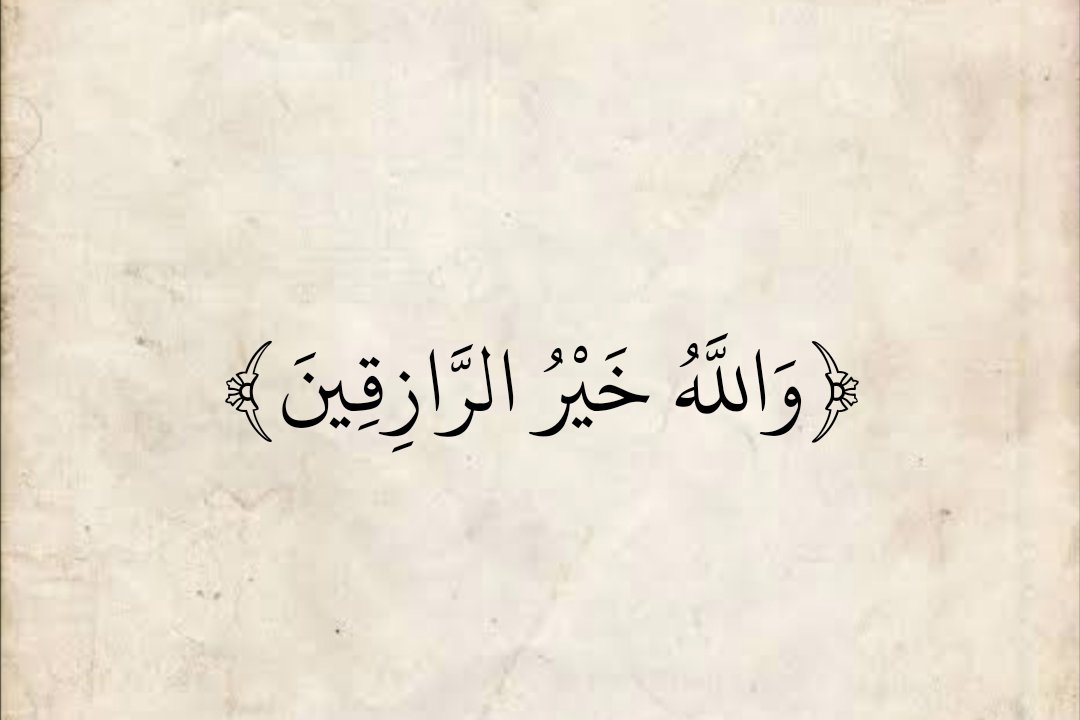 ﴿ وَاللَّهُ خَيْرُ الرَّازِقِينَ ﴾